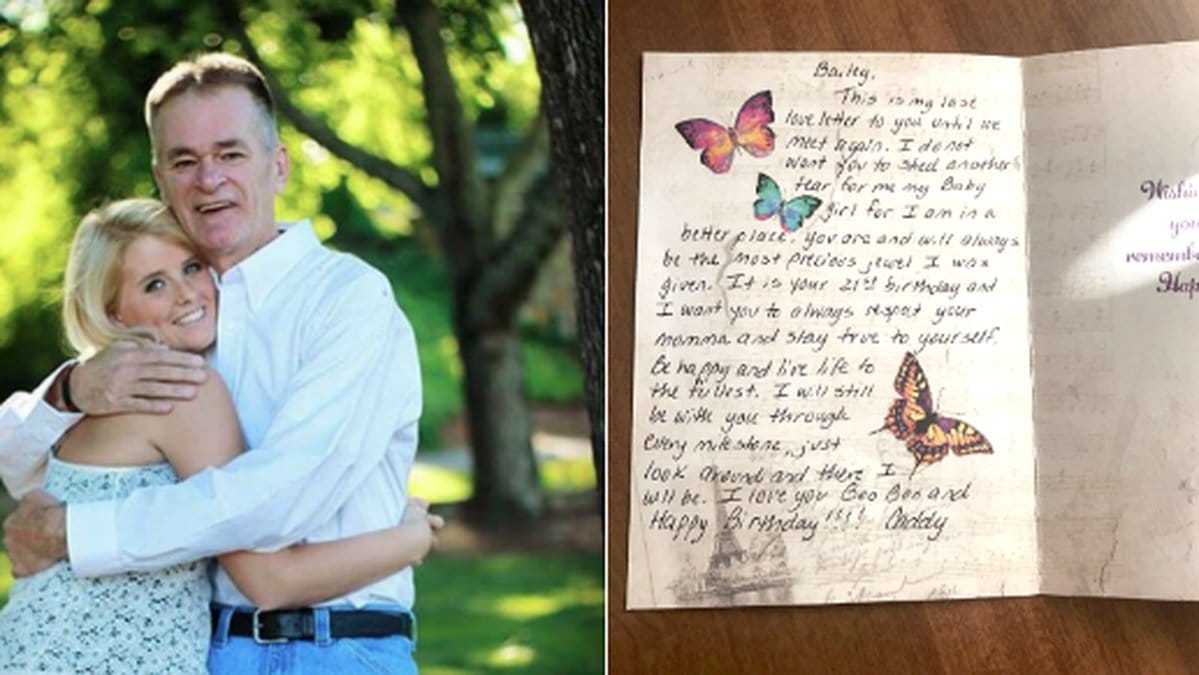 Bailey,
This is my last
love letter to you until we
meet again. I do not
want you to shed another
tear for me my Baby
girl for I am in a
better place. You are and will always
be the most precious jewel I was
given. It is your 21st birthday and
I want you to always respect your
momma and stay true to yourself.
Be happy and live life to
the fullest. I will still
be with you through
every milestone, just
look around and there I
will be. I love you Boo Boo and
Happy Birthday!!!! Daddy
Wishin
you
rememb
Hap